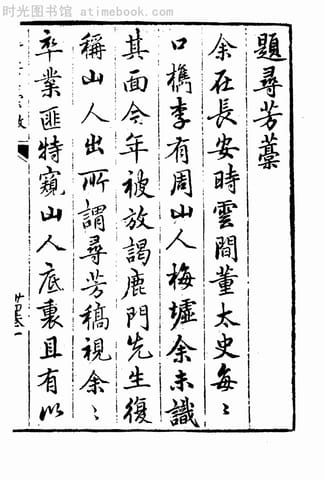 时光图书馆 - atimebook.com
題尋芳藳
余在長安時雲間董太史每〻
口檇李有周山人梅墟余未識
其面今年被放謁鹿門先生復
稱山人出所謂尋芳稿視余〻
卒業匪特窺山人底裏且有以